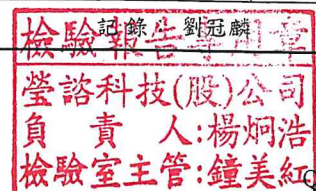 記錄人 劉冠麟
檢驗報告專用章
瑩諮科技(股)公司
負責人:楊炯浩
檢驗室主管:鐘美紅